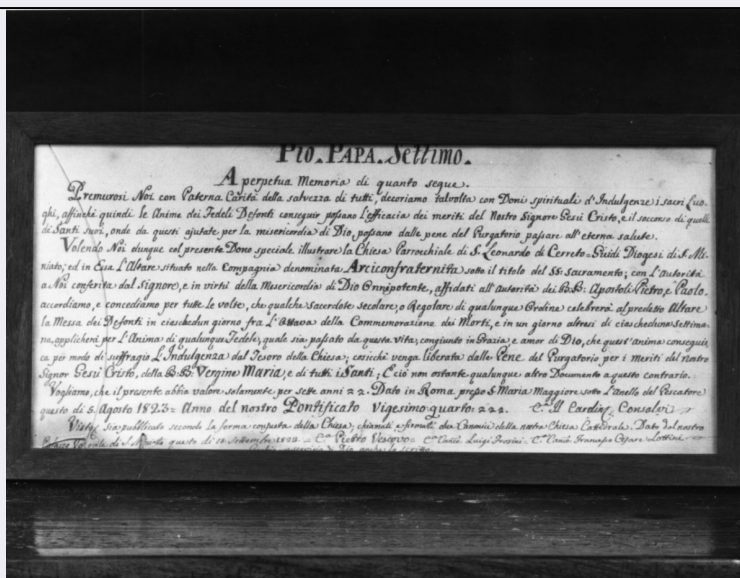 PIO. PAPA. Settimo.
A perpetua Memoria di quanto segue.
Premurosi Noi con Paterna Carità della salvezza di tutti, decoriamo talvolta con Doni spirituali d'Indulgenze i sacri Luo-
ghi, affinchè quindi le Anime dei Fedeli Defonti conseguir possano l'efficacia dei meriti del Nostro Signore Gesù Cristo, e il soccorso di quelli
di Santi suoi, onde da questi ajutate per la misericordia di Dio, possano dalle pene del Purgatorio passare all'eterna salute.
Volendo Noi dunque col presente Dono speciale illustrare la Chiesa Parrocchiale di S. Leonardo di Cerreto-Guidi Diogesi di S. Mi-
niato; ed in Essa L'Altare situato nella Compagnia denominata Arciconfraternita sotto il titolo del SS: sacramento; con l'Autorità
a Noi conferita dal Signore, e in virtù della Misericordia di Dio Onnipotente, affidati all'autorità dei B.B: Apostoli Pietro, e Paolo.
accordiamo, e concediamo per tutte le volte, che qualche Sacerdote secolare, o Regolare di qualunque Ordine celebrerà al predetto Altare
la Messa dei Defonti in ciaschedun giorno fra L'Ottava della Commemorazione dei Morti, e in un giorno altresì di ciascheduna Settima-
na, applicherà per L'Anima di qualunque Fedele, quale sia passato da questa vita, congiunto in Grazia, e amor di Dio, che quest'anima consegui-
ca per modo di suffragio L'Indulgenza dal Tesoro della Chiesa; cosicchè venga liberata dalle Pene del Purgatorio per i meriti del nostro
Signor Gesù Cristo, della B.B: Vergine Maria, e di tutti i Santi, E ciò non ostante qualunque altro Documento a questo contrario.
Vogliamo, che il presente abbia valore solamente per sette anni Dato in Roma presso S. Maria Maggiore sotto L'Anello del Pescatore
questo dì 5. Agosto 1823= Anno del nostro Pontificato Vigesimo quarto: Il Consalvi
Visto, sia pubblicato secondo la forma consueta della Chiesa; chiamati due Canonici della nostra Chiesa Cattedrale. Dato dal nostro
questo di Settembre Pietro Vescovo Luigi Cesare